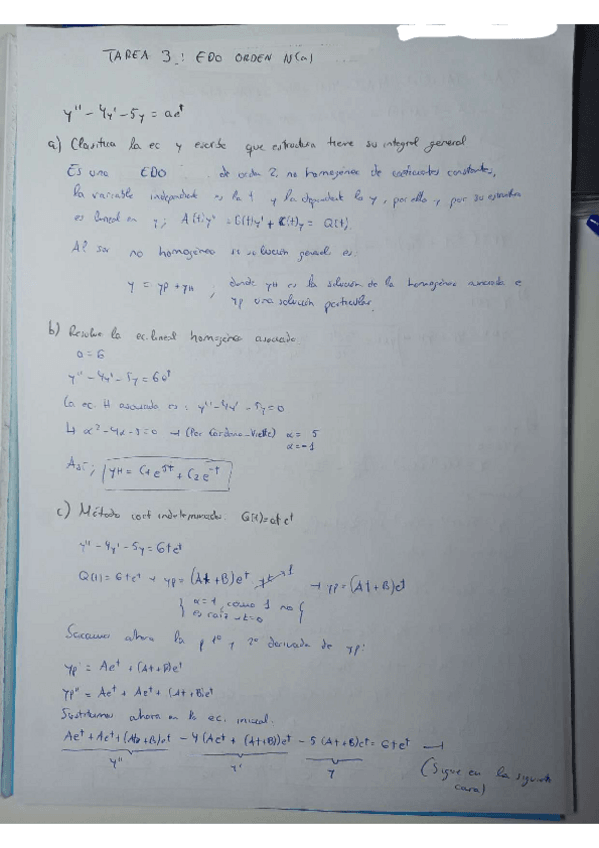 TAREA 3: EDO ORDEN N(a)
y'' - 4y' - 5y = ae^t
a) Clasifica la ec y escribe que estructura tiene su integral general
Es una EDO de orden 2, no homogénea de coeficientes constantes,
la variable independiente es la t y la dependiente la y, por ello y por su estructura
es lineal en y; A(t)y'' + B(t)y' + C(t)y = Q(t).
Al ser no homogénea su solución general es:
y = yp + yH ; donde yH es la solución de la homogénea asociada e
yp una solución particular.
b) Resolve la ec. lineal homogénea asociada
a = 6
y'' - 4y' - 5y = 6e^t
La ec. H asociada es: y'' - 4y' - 5y = 0
↳ α² - 4α - 5 = 0 → (Por Cardano-Viette) α = 5
α = -1
Así; yH = C1 e^5t + C2 e^-t
c) Método coef indeterminados. Q(t) = 6te^t
y'' - 4y' - 5y = 6te^t
Q(t) = 6te^t → yp = (At + B)e^t t^k 1 → yp = (At + B)e^t
{ α = 1, como 1 no es raiz → k = 0 }
Sacamos ahora la 1º y 2º derivada de yp:
yp' = Ae^t + (At + B)e^t
yp'' = Ae^t + Ae^t + (At + B)e^t
Sustituimos ahora en la ec. inicial.
Ae^t + Ae^t + (At + B)e^t - 4(Ae^t + (At + B)e^t) - 5(At + B)e^t = 6te^t →
y'' y' y
(Sigue en la siguiente
cara)